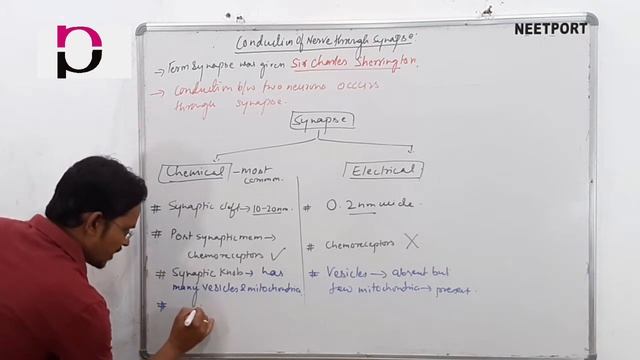 NEETPORT
Conduction of Nerve through Synapse:
→ Term Synapse was given Sir Charles Sherrington.
→ Conduction b/w two neurons occurs
through synapse.
Synapse
Chemical – most
common.
# Synaptic cleft → 10-20nm.
# Post synaptic mem →
chemoreceptors ✓
# Synaptic Knob → has
many vesicles & mitochondria
#
Electrical
# 0.2nm wide.
# Chemoreceptors ✗
# Vesicles → absent but
few mitochondria → present.